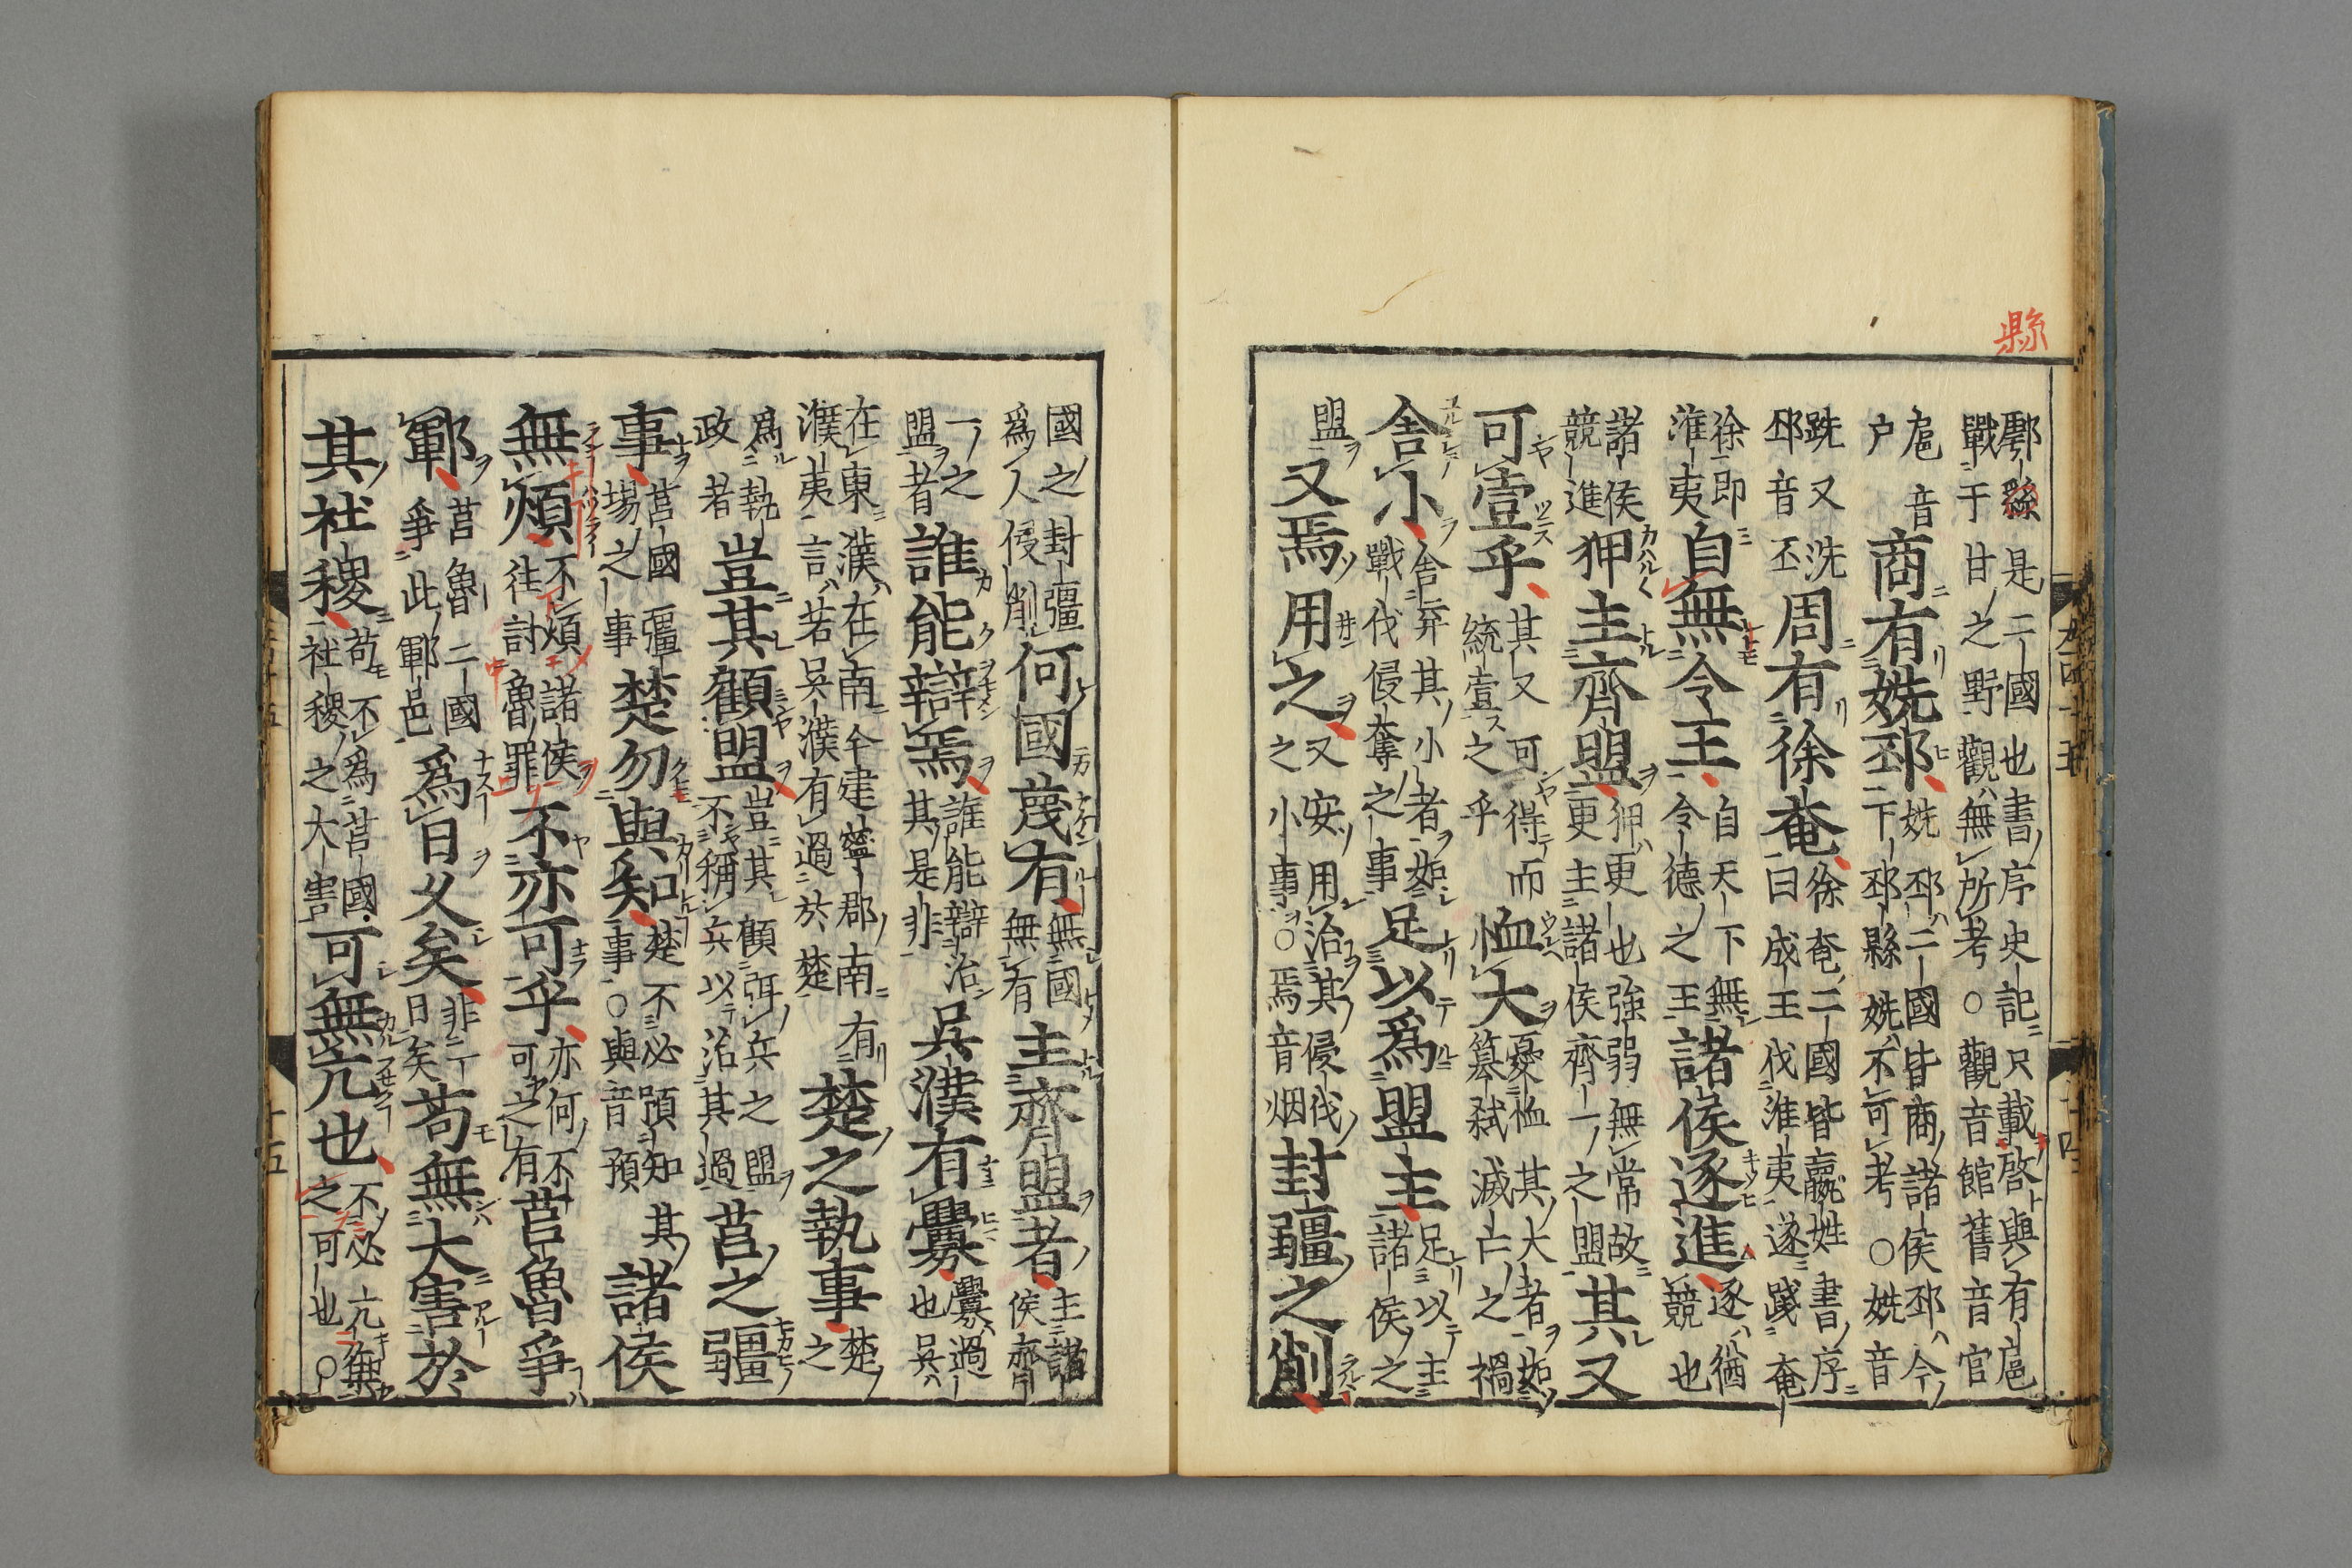 縣
鄠縣是二國也書序史記只載啓與有扈
戰于甘之野觀無所考○觀音館舊音官
扈音
户
商有姺邳
姺邳二國皆商諸侯邳今
下邳縣姺不可考○姺音
跣又洗
邳音丕
周有徐奄
徐奄二國皆嬴姓書序
曰成王伐淮夷遂踐奄
徐即
淮夷
自無令王
自天下無
令德之王
諸侯逐進
逐猶
競也
諸侯
競進
狎主齊盟
狎更也強弱無常故
更主諸侯齊一之盟
其又
可壹乎
其又可得而
統壹之乎
恤大
憂恤其大者如
篡弑滅亡之禍
舍小
舍弃其小者如
戰伐侵奪之事
足以爲盟主
足以主
諸侯之
盟
又焉用之
又安用治其侵伐
之小事○焉音烟
封疆之削
國之封疆
爲人侵削
何國蔑有
無國
無有
主齊盟者
主諸
侯齊
一之
盟者
誰能辯焉
誰能辯治
其是非
吳濮有釁
釁過
也吳
在東濮在南今建寧郡南有
濮夷言若吳濮有過於楚
楚之執事
楚
之
爲執
政者
豈其顧盟
豈其顧弭兵之盟
不稱兵以治其過
莒之疆
事
莒國疆
場之事
楚勿與知
楚不必預知其
事○與音預
諸侯
無煩
不煩諸侯
往討魯罪
不亦可乎
亦何不
可之有
莒魯爭
鄆
莒魯二國
爭此鄆邑
爲日久矣
非一
日矣
苟無大害於
其社稷
苟不爲莒國
社稷之大害
可無亢也
不必亢禦
之可也○